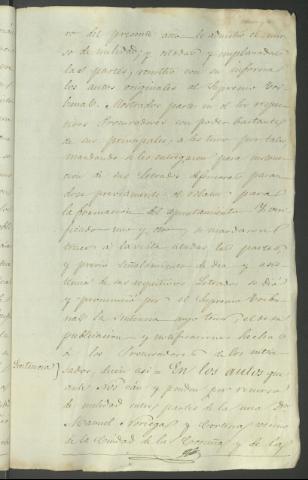 ro del presente año le admitio el recur-
so de nulidad; y citadas y emplazadas
las partes, remitio con su informe
los autos originales al Supremo Tri-
bunal. Mostradas parte en el los respec-
tivos Procuradores con poder bastante
de sus principales, se les tuvo por tales
mandando se les entregasen para instruc-
cion de sus Letrados defensores, pasan-
dose previamente al relator para
la formacion del apuntamiento. Veri-
ficado uno y otro, se mandaron
traer a la vista citadas las partes
y previo señalamiento de dia y asis-
tencia de sus respectivos Letrados se dió
y pronunció por el Supremo Tribu-
nal la sentencia cuyo tenor, el de su
publicacion y notificaciones hechas
á los Procuradores de los intere-
Sentencia} sados, dicen asi = En los autos que
ante Nos van y penden por recurso
de nulidad entre partes de la una Don
Manuel Noriega y Cortina vecino
de la Ciudad de la Coruña y de la